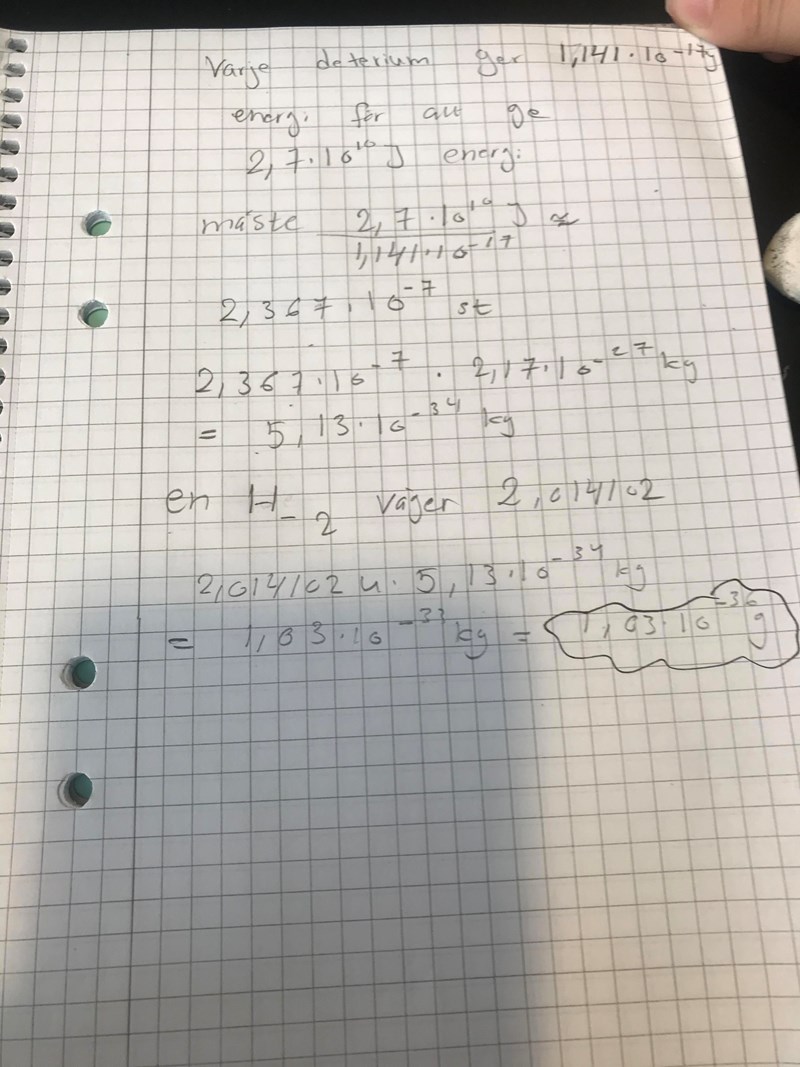 Varje deterium ger 1,141·10⁻¹⁷J
energi för att ge
2,7·10¹⁰ J energi
måste 2,7·10¹⁰ J / 1,141·10⁻¹⁷ ≈
2,367·10⁻⁷ st
2,367·10⁻⁷ · 2,17·10⁻²⁷ kg
= 5,13·10⁻³⁴ kg
en H₋₂ väger 2,014102
2,014102 u · 5,13·10⁻³⁴ kg
= 1,03·10⁻³³ kg = 1,03·10⁻³⁶ g